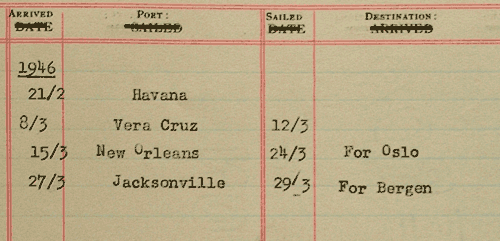 ARRIVED PORT: SAILED DESTINATION:
DATE SAILED DATE ARRIVED
1946
21/2 Havana
8/3 Vera Cruz 12/3
15/3 New Orleans 24/3 For Oslo
27/3 Jacksonville 29/3 For Bergen